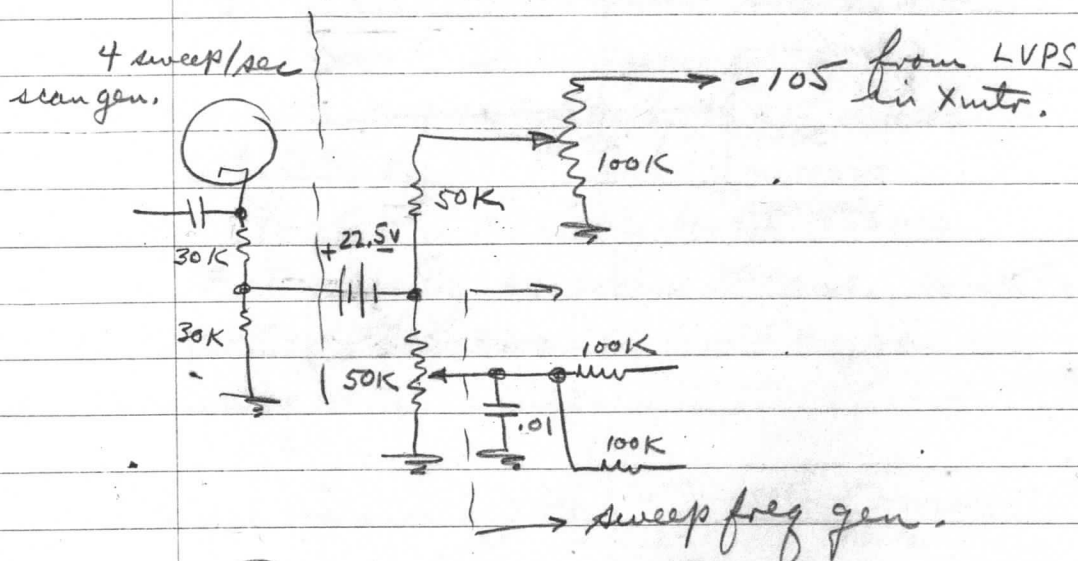 4 sweep/sec
scan gen.
-105 from LVPS
in Xmtr.
100K
50K
30K
+ 22.5v
30K
50K
100K
.01
100K
sweep freq gen.